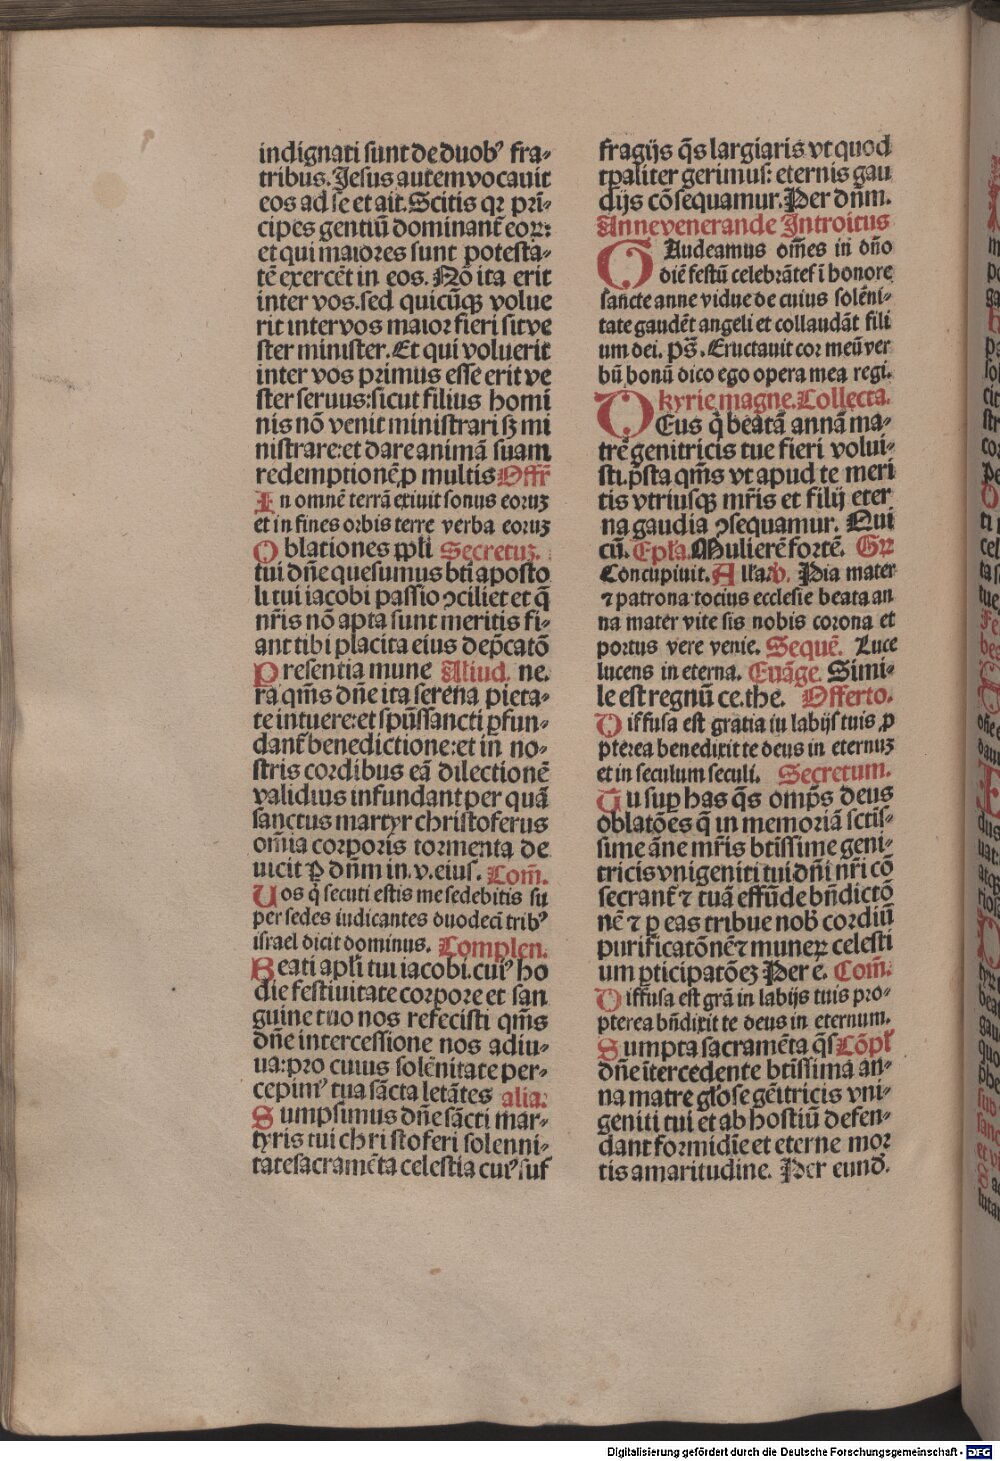 indignati sunt de duobꝰ fra⸗
tribus. Jesus autem vocauit
eos ad se et ait. Scitis qꝛ pri̅⸗
cipes gentiu̅ dominant᷑ eoꝝ:
et qui maiores sunt potesta⸗
te̅ exerce̅t in eos. No̅ ita erit
inter vos. sed quicu̅qꝫ volue
rit inter vos maior fieri sit ve
ster minister. Et qui voluerit
inter vos primus esse erit ve
ster seruus: sicut filius homi
nis no̅ venit ministrari sꝫ mi
nistrare: et dare anima̅ suam
redemptione̅ ꝓ multis Offr̄
In omne̅ terra̅ exiuit sonus eoruꝫ
et in fines orbis terre verba eoruꝫ
Oblationes ppl̄i Secretuꝫ.
tui dn̅e quesumus bt̅i aposto
li tui iacobi passio ꝯciliet et q̅
nr̅is no̅ apta sunt meritis fi⸗
ant tibi placita eius dep̅cato̅
Presentia mune Aliud. ne.
ra qm̅s dn̅e ita serena pieta⸗
te intuere: et sp̅ussancti ꝑfun⸗
dant᷑ benedictione: et in no⸗
stris cordibus ea̅ dilectione̅
validius infundant per qua̅
sanctus martyr christoferus
om̅ia corporis tormenta de
uicit ꝑ dn̅m in. v. eius. Com̅.
Uos q̇ secuti estis me sedebitis su
per sedes iudicantes duodeci̅ tribꝰ
israel dicit dominus. Complen.
Beati apl̄i tui iacobi. cuiꝰ ho
die festiuitate corpore et san
guine tuo nos refecisti qm̅s
dn̅e intercessione nos adiu⸗
ua: pro cuius sole̅nitate per⸗
cepimꝰ tua sa̅cta leta̅tes alia:
Sumpsimus dn̅e sa̅cti mar⸗
tyris tui christoferi solenni⸗
tate sacrame̅ta celestia cuiꝰ suf
fragijs q̅s largiaris vt quod
tp̅aliter gerimus: eternis gau
dijs co̅sequamur. Per dn̅m.
Anne venerande Introitus
GAudeamus om̅es in dn̅o
die̅ festu̅ celebra̅tes i̅ honore
sancte anne vidue de cuius sole̅ni⸗
tate gaude̅t angeli et collauda̅t fili
um dei. ps̅. Eructauit cor meu̅ ver
bu̅ bonu̅ dico ego opera mea regi.
kyrie magne. Collecta.
DEus q̇ beata̅ anna̅ ma⸗
tre̅ genitricis tue fieri volui⸗
sti. p̅sta qm̅s vt apud te meri
tis vtriusqꝫ mr̅is et filij eter
na gaudia ꝯsequamur. Qui
cu̅. Epl̄a. Muliere̅ forte̅. Gꝛꝛ
Concupiuit. All̄a. v̇. Pia mater
⁊ patrona tocius ecclesie beata an
na mater vite sis nobis corona et
portus vere venie. Seque̅. Luce
lucens in eterna. Eua̅ge. Simi⸗
le est regnu̅ ce. the. Offerto.
Diffusa est gratia in labijs tuis ꝓ
pterea benedixit te deus in eternuꝫ
et in seculum seculi. Secretum.
Tu sup̱ has q̅s omp̅s deus
oblato̅es q̅ in memoria̅ sctis⸗
sime a̅ne mr̅is bt̅issime geni⸗
tricis vnigeniti tui dn̅i nr̅i co̅
secrant᷑ ⁊ tua̅ effu̅de bn̅dicto̅
ne̅ ⁊ ꝑ eas tribue nob̅ cordiu̅
purificato̅ne̅ ⁊ muneꝝ celesti
um ꝑticipato̅eꝫ Per e. Com̅:
Diffusa est gra̅ in labijs tuis pro⸗
pterea bn̅dixit te deus in eternum.
Sumpta sacrame̅ta q̅s Co̅pl̄
dn̅e i̅tercedente bt̅issima an⸗
na matre gl̄ose ge̅itricis vni⸗
geniti tui et ab hostiu̅ defen⸗
dant formidi̅e et eterne mor
tis amaritudine. Per eund̅.
Digitalisierung gefördert durch die Deutsche Forschungsgemeinschaft - DFG